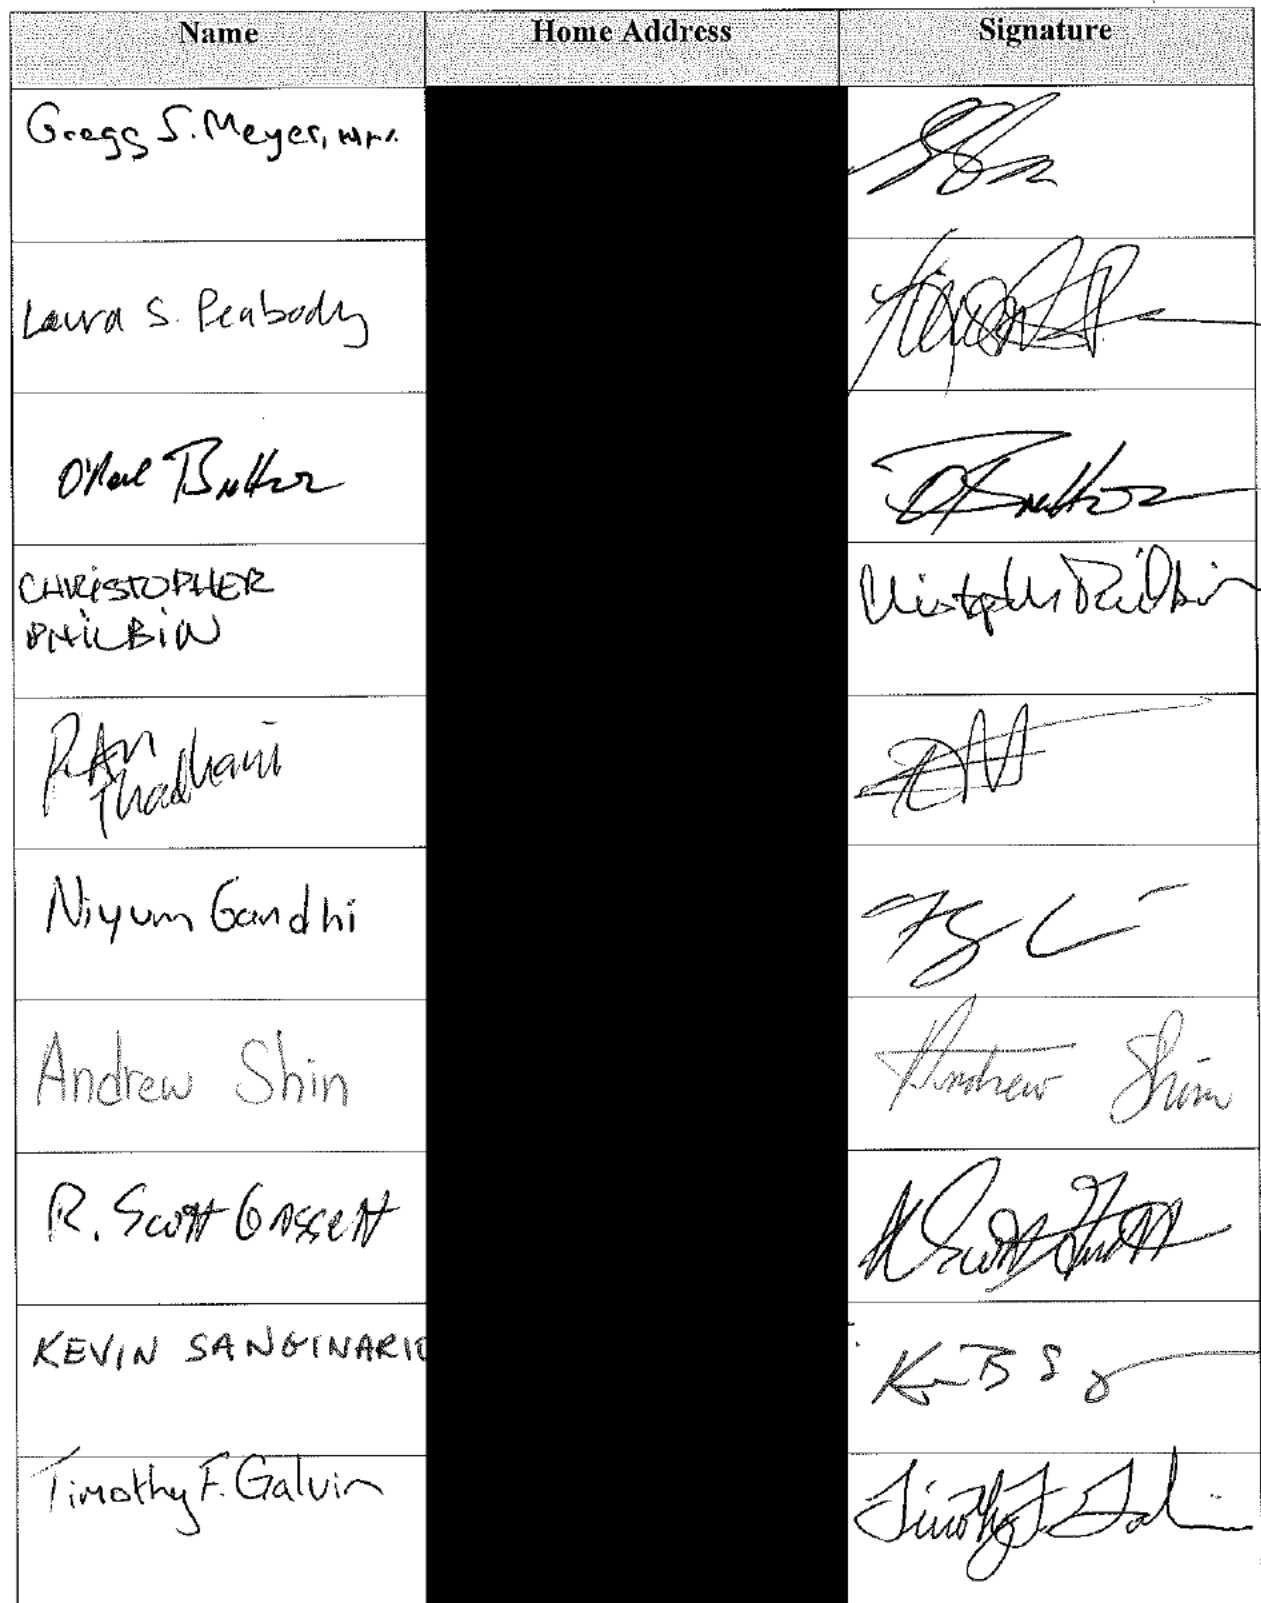 Name Home Address Signature
Gregg S. Meyer,
Laura S. Peabody
O'Neil Britton
CHRISTOPHER
PHILBIN Christopher Philbin
RAVI
Thadhani
Niyum Gandhi
Andrew Shin Andrew Shin
R. Scott Gassett R Scott Gassett
KEVIN SANGINARIO
Timothy F. Galvin Timothy F. Galvin